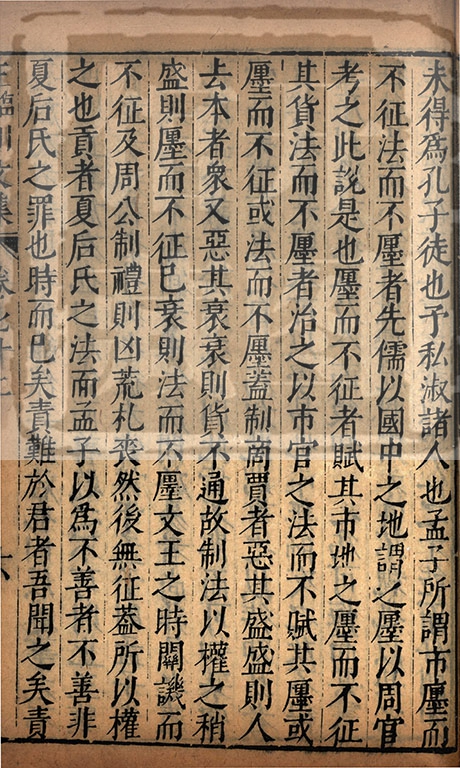 未得為孔子徒也予私淑諸人也孟子所謂市廛而
不征法而不廛者先儒以國中之地謂之廛以周官
考之此說是也廛而不征者賦其市地之廛而不征
其貨法而不廛者治之以市官之法而不賦其廛或
廛而不征或法而不廛蓋制商賈者惡其盛盛則人
去本者衆又惡其衰衰則貨不通故制法以權之稍
盛則廛而不征已衰則法而不廛文王之時關譏而
不征及周公制禮則凶荒札喪然後無征蓋所以權
之也貢者夏后氏之法而孟子以為不善者不善非
夏后氏之罪也時而已矣責難於君者吾聞之矣責
王臨川文集 卷七十二